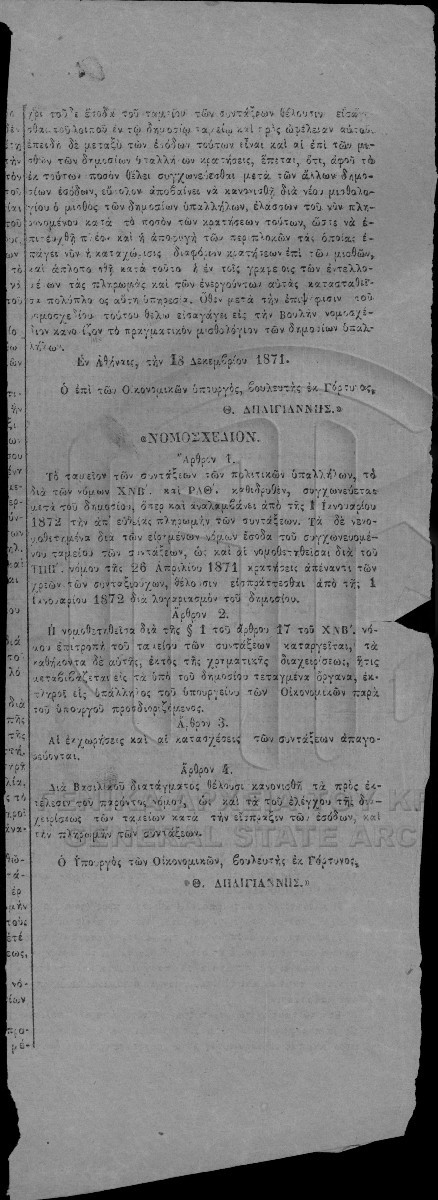 χρι τοῦδε ἔσοδα τοῦ ταμείου τῶν συντάξεων θέλουσιν εἰσά
σθαι τοῦ λοιποῦ ἐν τῷ δημοσίῳ ταμείῳ καὶ πρὸς ὠφέλειαν αὐτοῦ.
ἐπειδὴ δὲ μεταξὺ τῶν ἐσόδων τούτων εἶναι καὶ αἱ ἐπὶ τῶν μι-
σθῶν τῶν δημοσίων ὑπαλλήλων κρατήσεις, ἕπεται, ὅτι, ἀφοῦ τὸ
ἐκ τούτων ποσὸν θέλει συγχωνεύεσθαι μετὰ τῶν ἄλλων δημο-
σίων ἐσόδων, εὔκολον ἀποβαίνει νὰ κανονισθῇ διὰ νέου μισθολο-
γίου ὁ μισθὸς τῶν δημοσίων ὑπαλλήλων, ἐλάσσων τοῦ νῦν πλη-
ρωνομένου κατὰ τὸ ποσὸν τῶν κρατήσεων τούτων, ὥστε νὰ ἐ-
πιτευχθῇ πλέον καὶ ἡ ἀποφυγὴ τῶν περιπλοκῶν τὰς ὁποίας ἐ-
πάγει νῦν ἡ καταχώρισις διαφόρων κρατήσεων ἐπὶ τῶν μισθῶν,
καὶ κατὰ τοῦτο ἡ ἐν τοῖς γραφείοις τῶν ἐντελλο-
μένων τὰς πληρωμὰς καὶ τῶν ἐνεργούντων αὐτὰς κατασταθεῖ-
σα πολύπλοκος αὕτη ὑπηρεσία. Ὅθεν μετὰ τὴν ἐπιψήφισιν τοῦ
νομοσχεδίου τούτου θέλω εἰσαγάγει εἰς τὴν Βουλὴν νομοσχέ-
διον κανονίζον τὸ πραγματικὸν μισθολόγιον τῶν δημοσίων ὑπαλ-
λήλων.
Ἐν Ἀθήναις, τὴν 18 Δεκεμβρίου 1871.
Ὁ ἐπὶ τῶν Οἰκονομικῶν ὑπουργός, βουλευτὴς ἐκ Γόρτυνος,
Θ. ΔΗΛΙΓΙΑΝΝΗΣ.»
«ΝΟΜΟΣΧΕΔΙΟΝ.
Ἄρθρον 1.
Τὸ ταμεῖον τῶν συντάξεων τῶν πολιτικῶν ὑπαλλήλων, τὸ
διὰ τῶν νόμων ΧΝΒ΄. καὶ ΡΛΘ΄. καθιδρυθέν, συγχωνεύεται
μετὰ τοῦ δημοσίου, ὅπερ καὶ ἀναλαμβάνει ἀπὸ τῆς 1 Ἰανουαρίου
1872 τὴν ἀπ' εὐθείας πληρωμὴν τῶν συντάξεων. Τὰ δὲ νενο-
μοθετημένα διὰ τῶν εἰρημένων νόμων ἔσοδα τοῦ συγχωνευομέ-
νου ταμείου τῶν συντάξεων, ὡς καὶ αἱ νομοθετηθεῖσαι διὰ τοῦ
νόμου τῆς 26 Ἀπριλίου 1871 κρατήσεις ἀπέναντι τῶν
χρεῶν τῶν συνταξιούχων, θέλουσιν εἰσπράττεσθαι ἀπὸ τῆς 1
Ἰανουαρίου 1872 διὰ λογαριασμὸν τοῦ δημοσίου.
Ἄρθρον 2.
Ἡ νομοθετηθεῖσα διὰ τῆς § 1 τοῦ ἄρθρου 17 τοῦ ΧΝΒ΄. νό-
μου ἐπιτροπὴ τοῦ ταμείου τῶν συντάξεων καταργεῖται, τὰ
καθήκοντα δὲ αὐτῆς, ἐκτὸς τῆς χρηματικῆς διαχειρίσεως, ἥτις
μεταβιβάζεται εἰς τὰ ὑπὸ τοῦ δημοσίου τεταγμένα ὄργανα, ἐκ-
πληροῖ εἷς ὑπάλληλος τοῦ ὑπουργείου τῶν Οἰκονομικῶν παρὰ
τοῦ ὑπουργοῦ προσδιοριζόμενος.
Ἄρθρον 3.
Αἱ ἐκχωρήσεις καὶ αἱ κατασχέσεις τῶν συντάξεων ἀπαγο-
ρεύονται.
Ἄρθρον 4.
Διὰ Βασιλικοῦ διατάγματος θέλουσι κανονισθῆ τὰ πρὸς ἐκ-
τέλεσιν τοῦ παρόντος νόμου, ὡς καὶ τὰ τοῦ ἐλέγχου τῆς δια-
χειρίσεως τῶν ταμείων κατὰ τὴν εἴσπραξιν τῶν ἐσόδων, καὶ
τὴν πληρωμὴν τῶν συντάξεων.
Ὁ Ὑπουργὸς τῶν Οἰκονομικῶν, βουλευτὴς ἐκ Γόρτυνος,
«Θ. ΔΗΛΙΓΙΑΝΝΗΣ.»
GENERAL STATE ARC